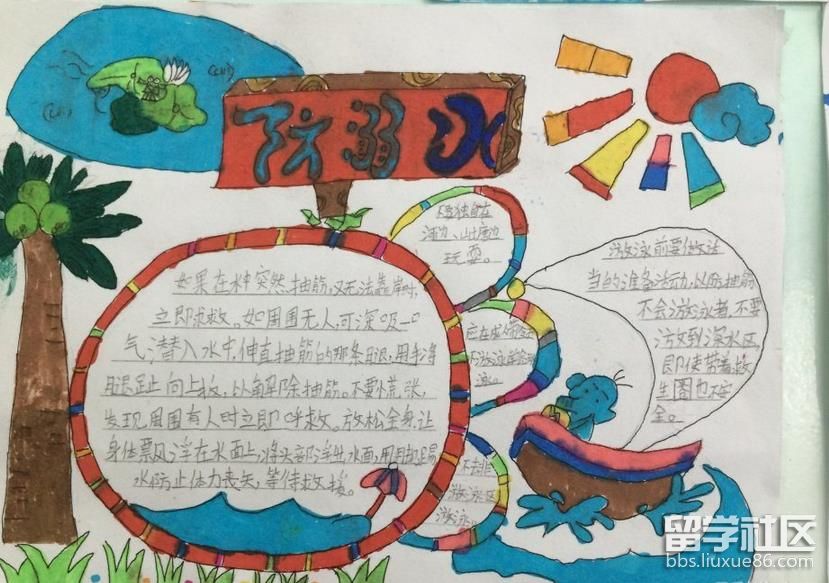 防溺水
不要独自在
河边、山塘边
玩耍。
如果在水中突然抽筋,又无法靠岸时,
立即求救。如周围无人,可深吸一口
气潜入水中,伸直抽筋的那条腿,用手将
腿趾向上扳,以解除抽筋。不要慌张,
发现周围有人时立即呼救。放松全身,让
身体漂浮在水面上,将头部浮出水面,用脚踢
水,防止体力丧失,等待救援。
应在成人
下游泳
泳。
不去非
游泳区
游泳。
游泳前要做适
当的准备活动,以防抽筋
不会游泳者,不要
游到深水区,
即使带着救
生圈也不安
全。
留学社区
bbs.liuxue86.com